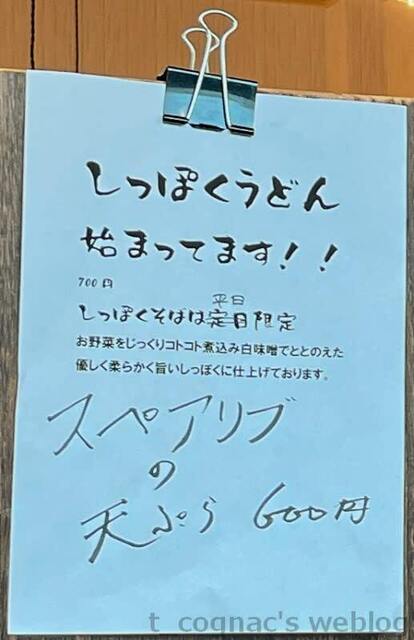 しっぽくうどん
始まってます！！
700円
平日
しっぽくそばは定日限定
お野菜をじっくりコトコト煮込み白味噌でととのえた
優しく柔らかく旨いしっぽくに仕上げております。
スペアリブ
の
天ぷら 600円
t_cognac's weblog